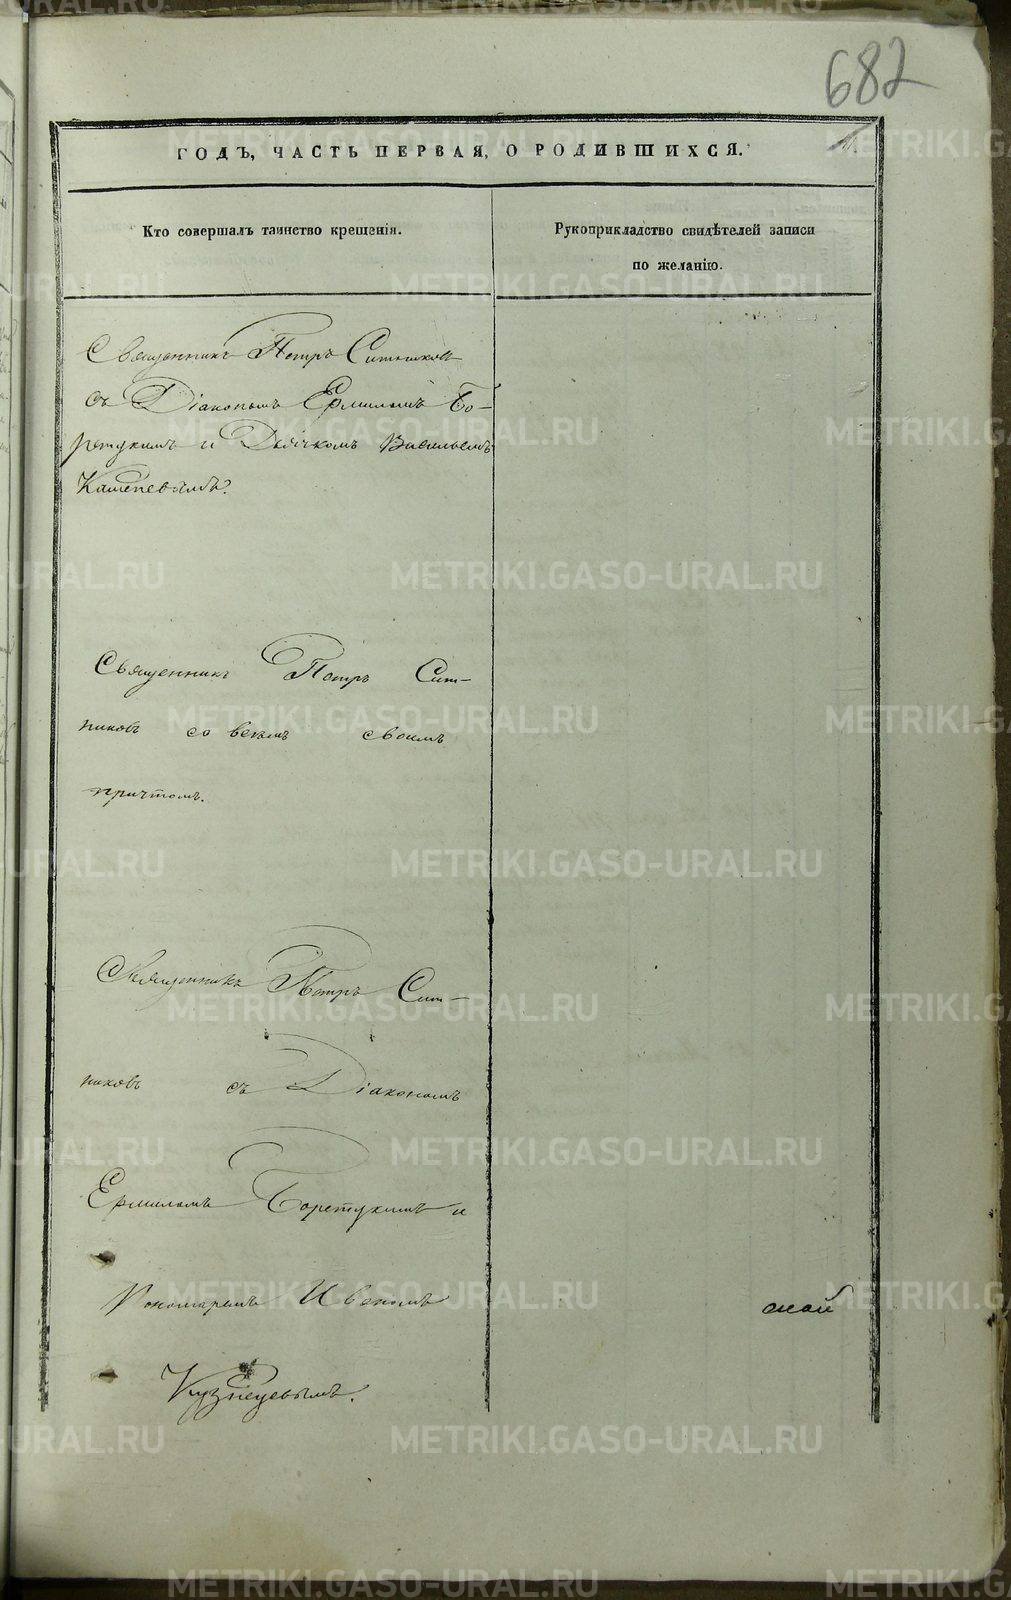 682
ГОДЪ, ЧАСТЬ ПЕРВАЯ, О РОДИВШИХСЯ.
Кто совершалъ таинство крещенія.
Рукоприкладство свидѣтелей записи
по желанію.
Священникъ Петръ Ситниковъ
съ Діакономъ Ермиломъ Бо-
рецкимъ и Дьячкомъ Васильемъ
Священникъ Петръ Сит-
никовъ со всѣмъ своимъ
причтомъ.
Священникъ Петръ Сит-
никовъ съ Діакономъ
Ермиломъ Борецкимъ и
Пономаремъ
Кузнецовымъ.
METRIKI.GASO-URAL.RU